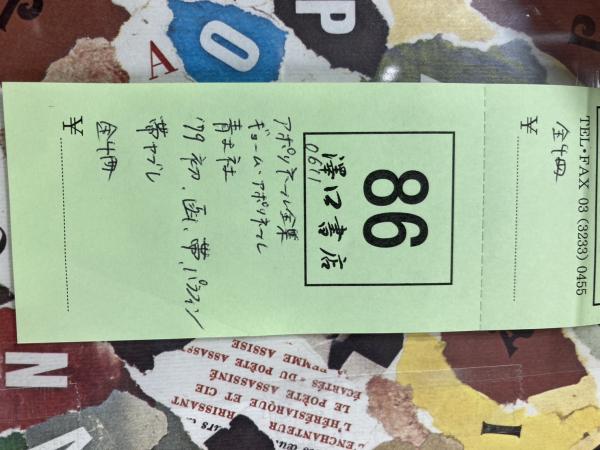 全4冊
¥
TEL・FAX 03 (3233) 0455
86
澤口書店
0611
アポリネール全集
ギョーム・アポリネール
青土社
'79 初. 函、帯、パラフィン
帯ヤブレ
全4冊
¥
O
P
A
N
I
FEMME ASSISE
ÉCARTÉS • DU POÈTE ASSASS
LE POÈTE ASSASSINÉ
L'HÉRÉSIARQUE ET CIE
L'ENCHANTEUR
RRISSANT